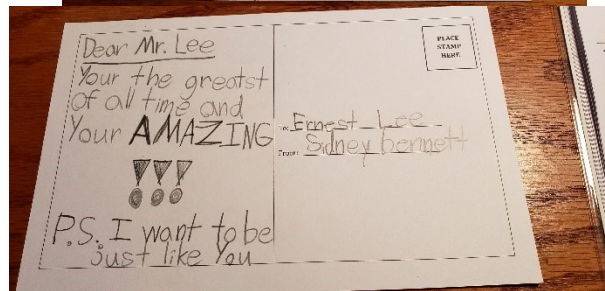 Dear Mr. Lee
Your the greatst
of all time and
Your AMAZING
!!!
P.S. I want to be
just like You
PLACE
STAMP
HERE
To: Ernest Lee
From: Sidney bennett